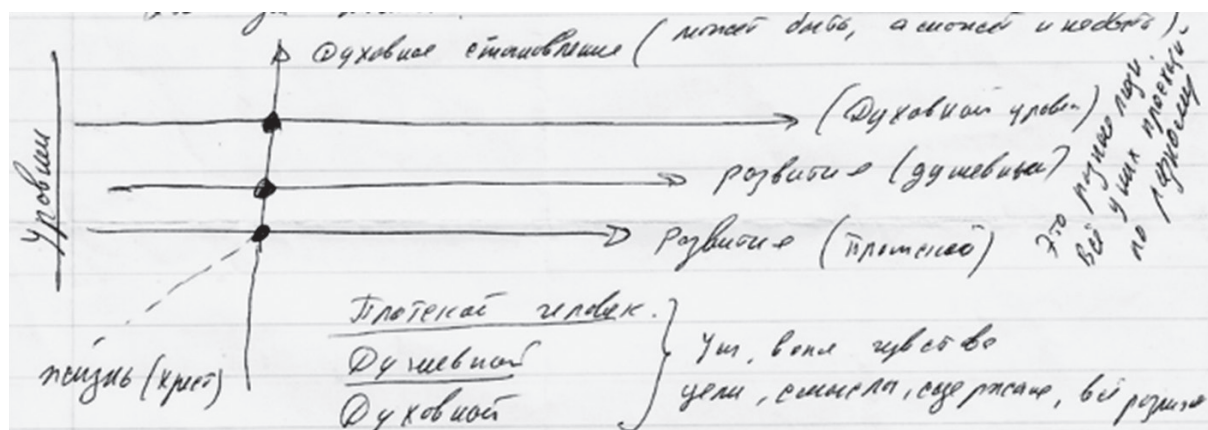 Духовное становление (может быть, а может и не быть).
Уровни
(Духовной уровен)
развитие (душевный)
развитие (плотской)
Это разные люди.
Всё у них происходит
по разному
жизнь (крест)
Плотской человек.
Душевной
Духовной
Ум, воля чувства
цели, смыслы, содержание, всё разное